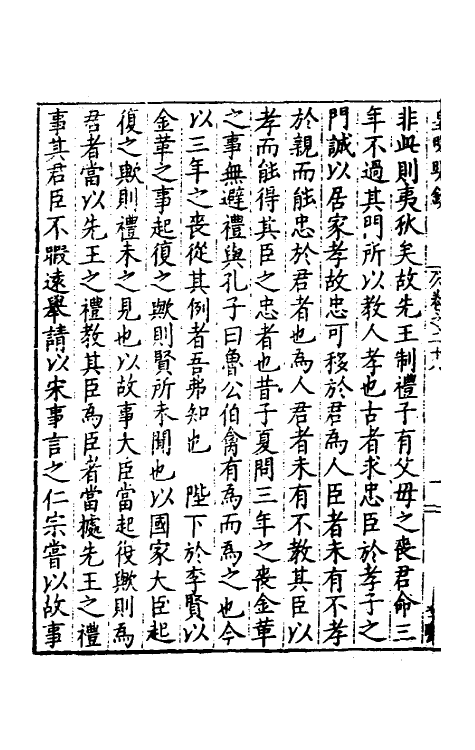 非此則夷狄矣故先王制禮子有父母之喪君命三
年不過其門所以教人孝也古者求忠臣於孝子之
門誠以居家孝故忠可移於君為人臣者未有不孝
於親而能忠於君者也為人君者未有不教其臣以
孝而能得其臣之忠者也昔子夏問三年之喪金革
之事無避禮與孔子曰魯公伯禽有為而為之也今
以三年之喪從其例者吾弗知也　陛下於李賢以
金革之事起復之歟則賢所未聞也以國家大臣起
復之歟則禮未之見也以故事大臣當起復歟則為
君者當以先王之禮教其臣為臣者當據先王之禮
事其君臣不暇遠舉請以宋事言之仁宗嘗以故事